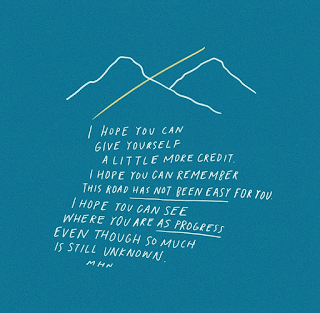 I HOPE YOU CAN
GIVE YOURSELF
A LITTLE MORE CREDIT.
I HOPE YOU CAN REMEMBER
THIS ROAD HAS NOT BEEN EASY FOR YOU.
I HOPE YOU CAN SEE
WHERE YOU ARE AS PROGRESS
EVEN THOUGH SO MUCH
IS STILL UNKNOWN.
MHN